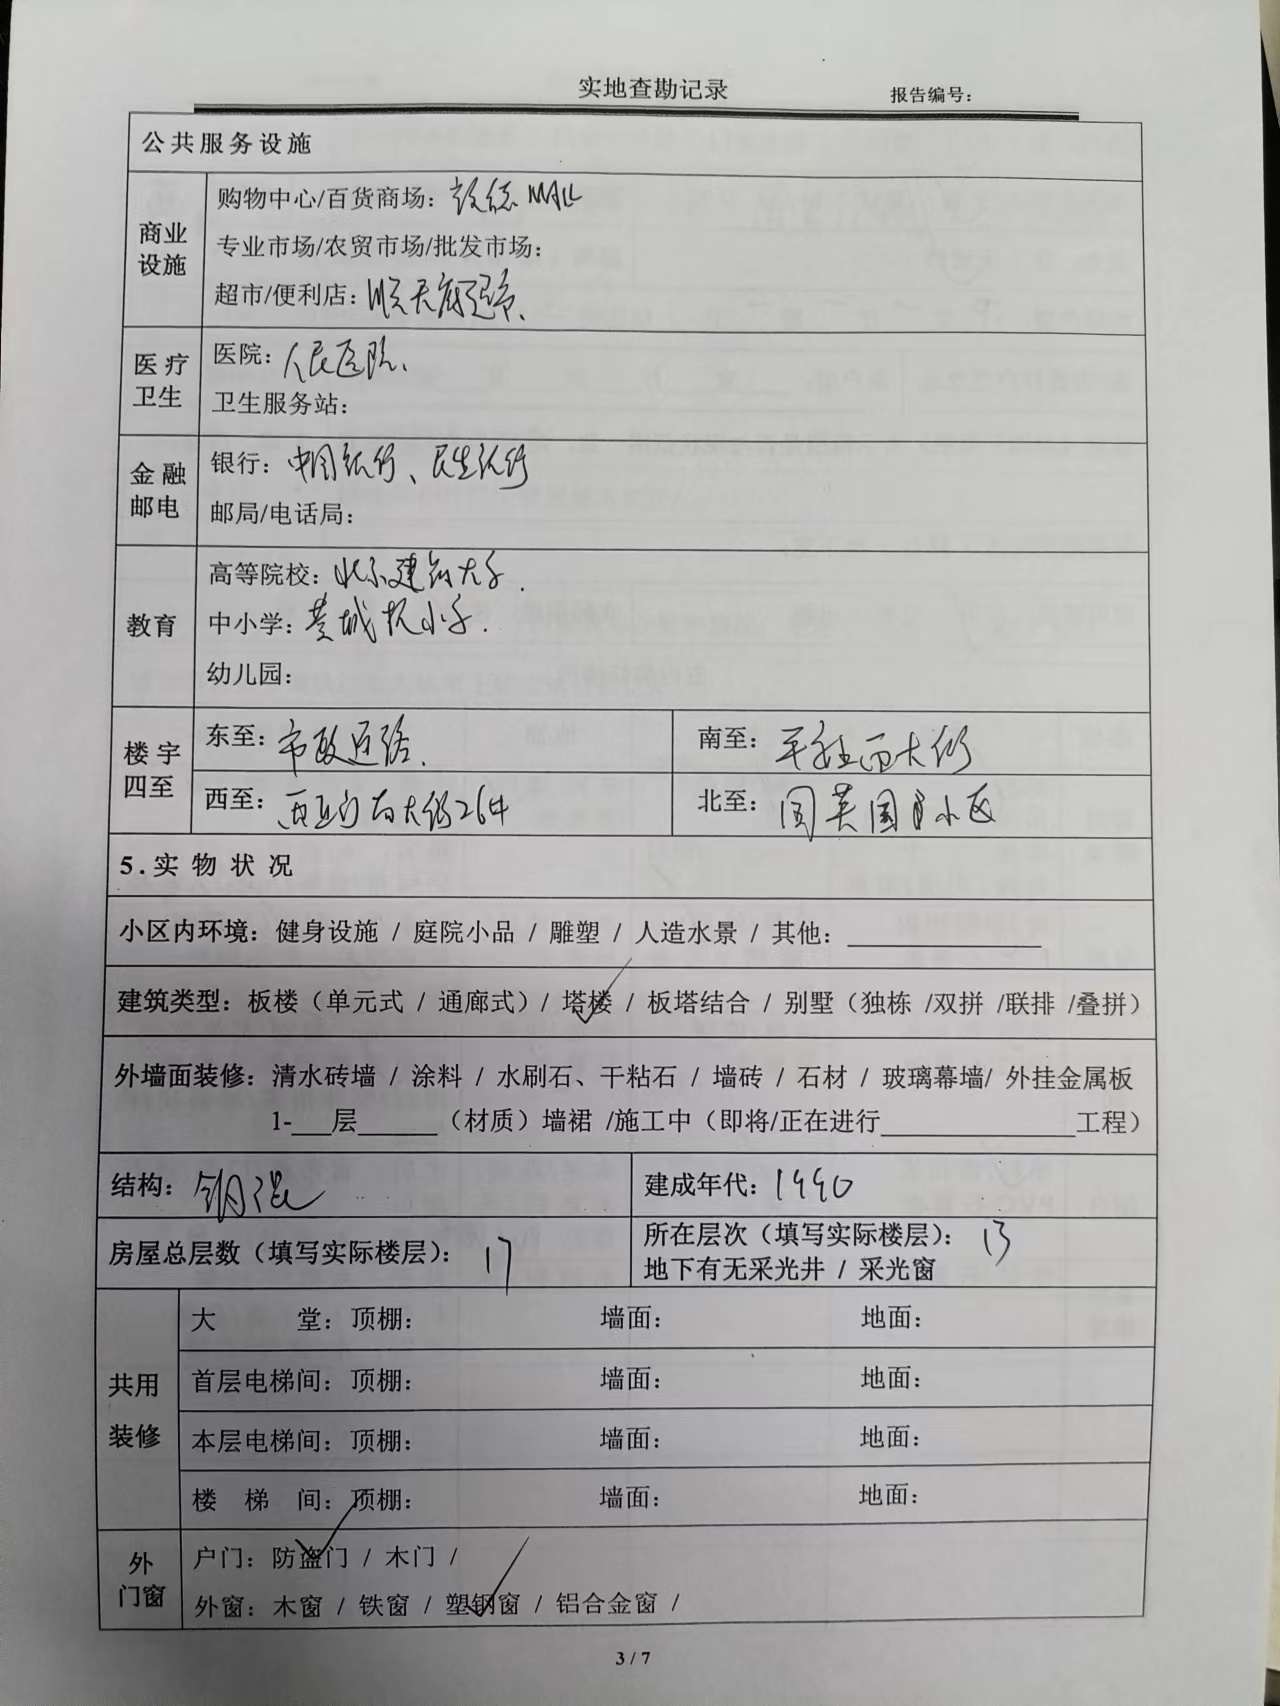 实地查勘记录 报告编号：
公共服务设施
商业设施
购物中心/百货商场：MALL
专业市场/农贸市场/批发市场：
超市/便利店：顺天府超市、
医疗卫生
医院：人民医院、
卫生服务站：
金融邮电
银行：中国银行、民生银行
邮局/电话局：
教育
高等院校：北京建筑大学.
中小学：黄城根小学.
幼儿园：
楼宇四至
东至：市政道路. 南至：平安里西大街
西至：西直门南大街26# 北至：国英园小区
5.实物状况
小区内环境：健身设施 / 庭院小品 / 雕塑 / 人造水景 / 其他：
建筑类型：板楼（单元式 / 通廊式）/ 塔楼 / 板塔结合 / 别墅（独栋 /双拼 /联排 /叠拼）
外墙面装修：清水砖墙 / 涂料 / 水刷石、干粘石 / 墙砖 / 石材 / 玻璃幕墙/ 外挂金属板
1-___层______（材质）墙裙 /施工中（即将/正在进行_______________工程）
结构：钢混 建成年代：1990
房屋总层数（填写实际楼层）：17 所在层次（填写实际楼层）：13
地下有无采光井 / 采光窗
共用装修
大 堂：顶棚： 墙面： 地面：
首层电梯间：顶棚： 墙面： 地面：
本层电梯间：顶棚： 墙面： 地面：
楼 梯 间：顶棚： 墙面： 地面：
外门窗
户门：防盗门 / 木门 /
外窗：木窗 / 铁窗 / 塑钢窗 / 铝合金窗 /
3 / 7